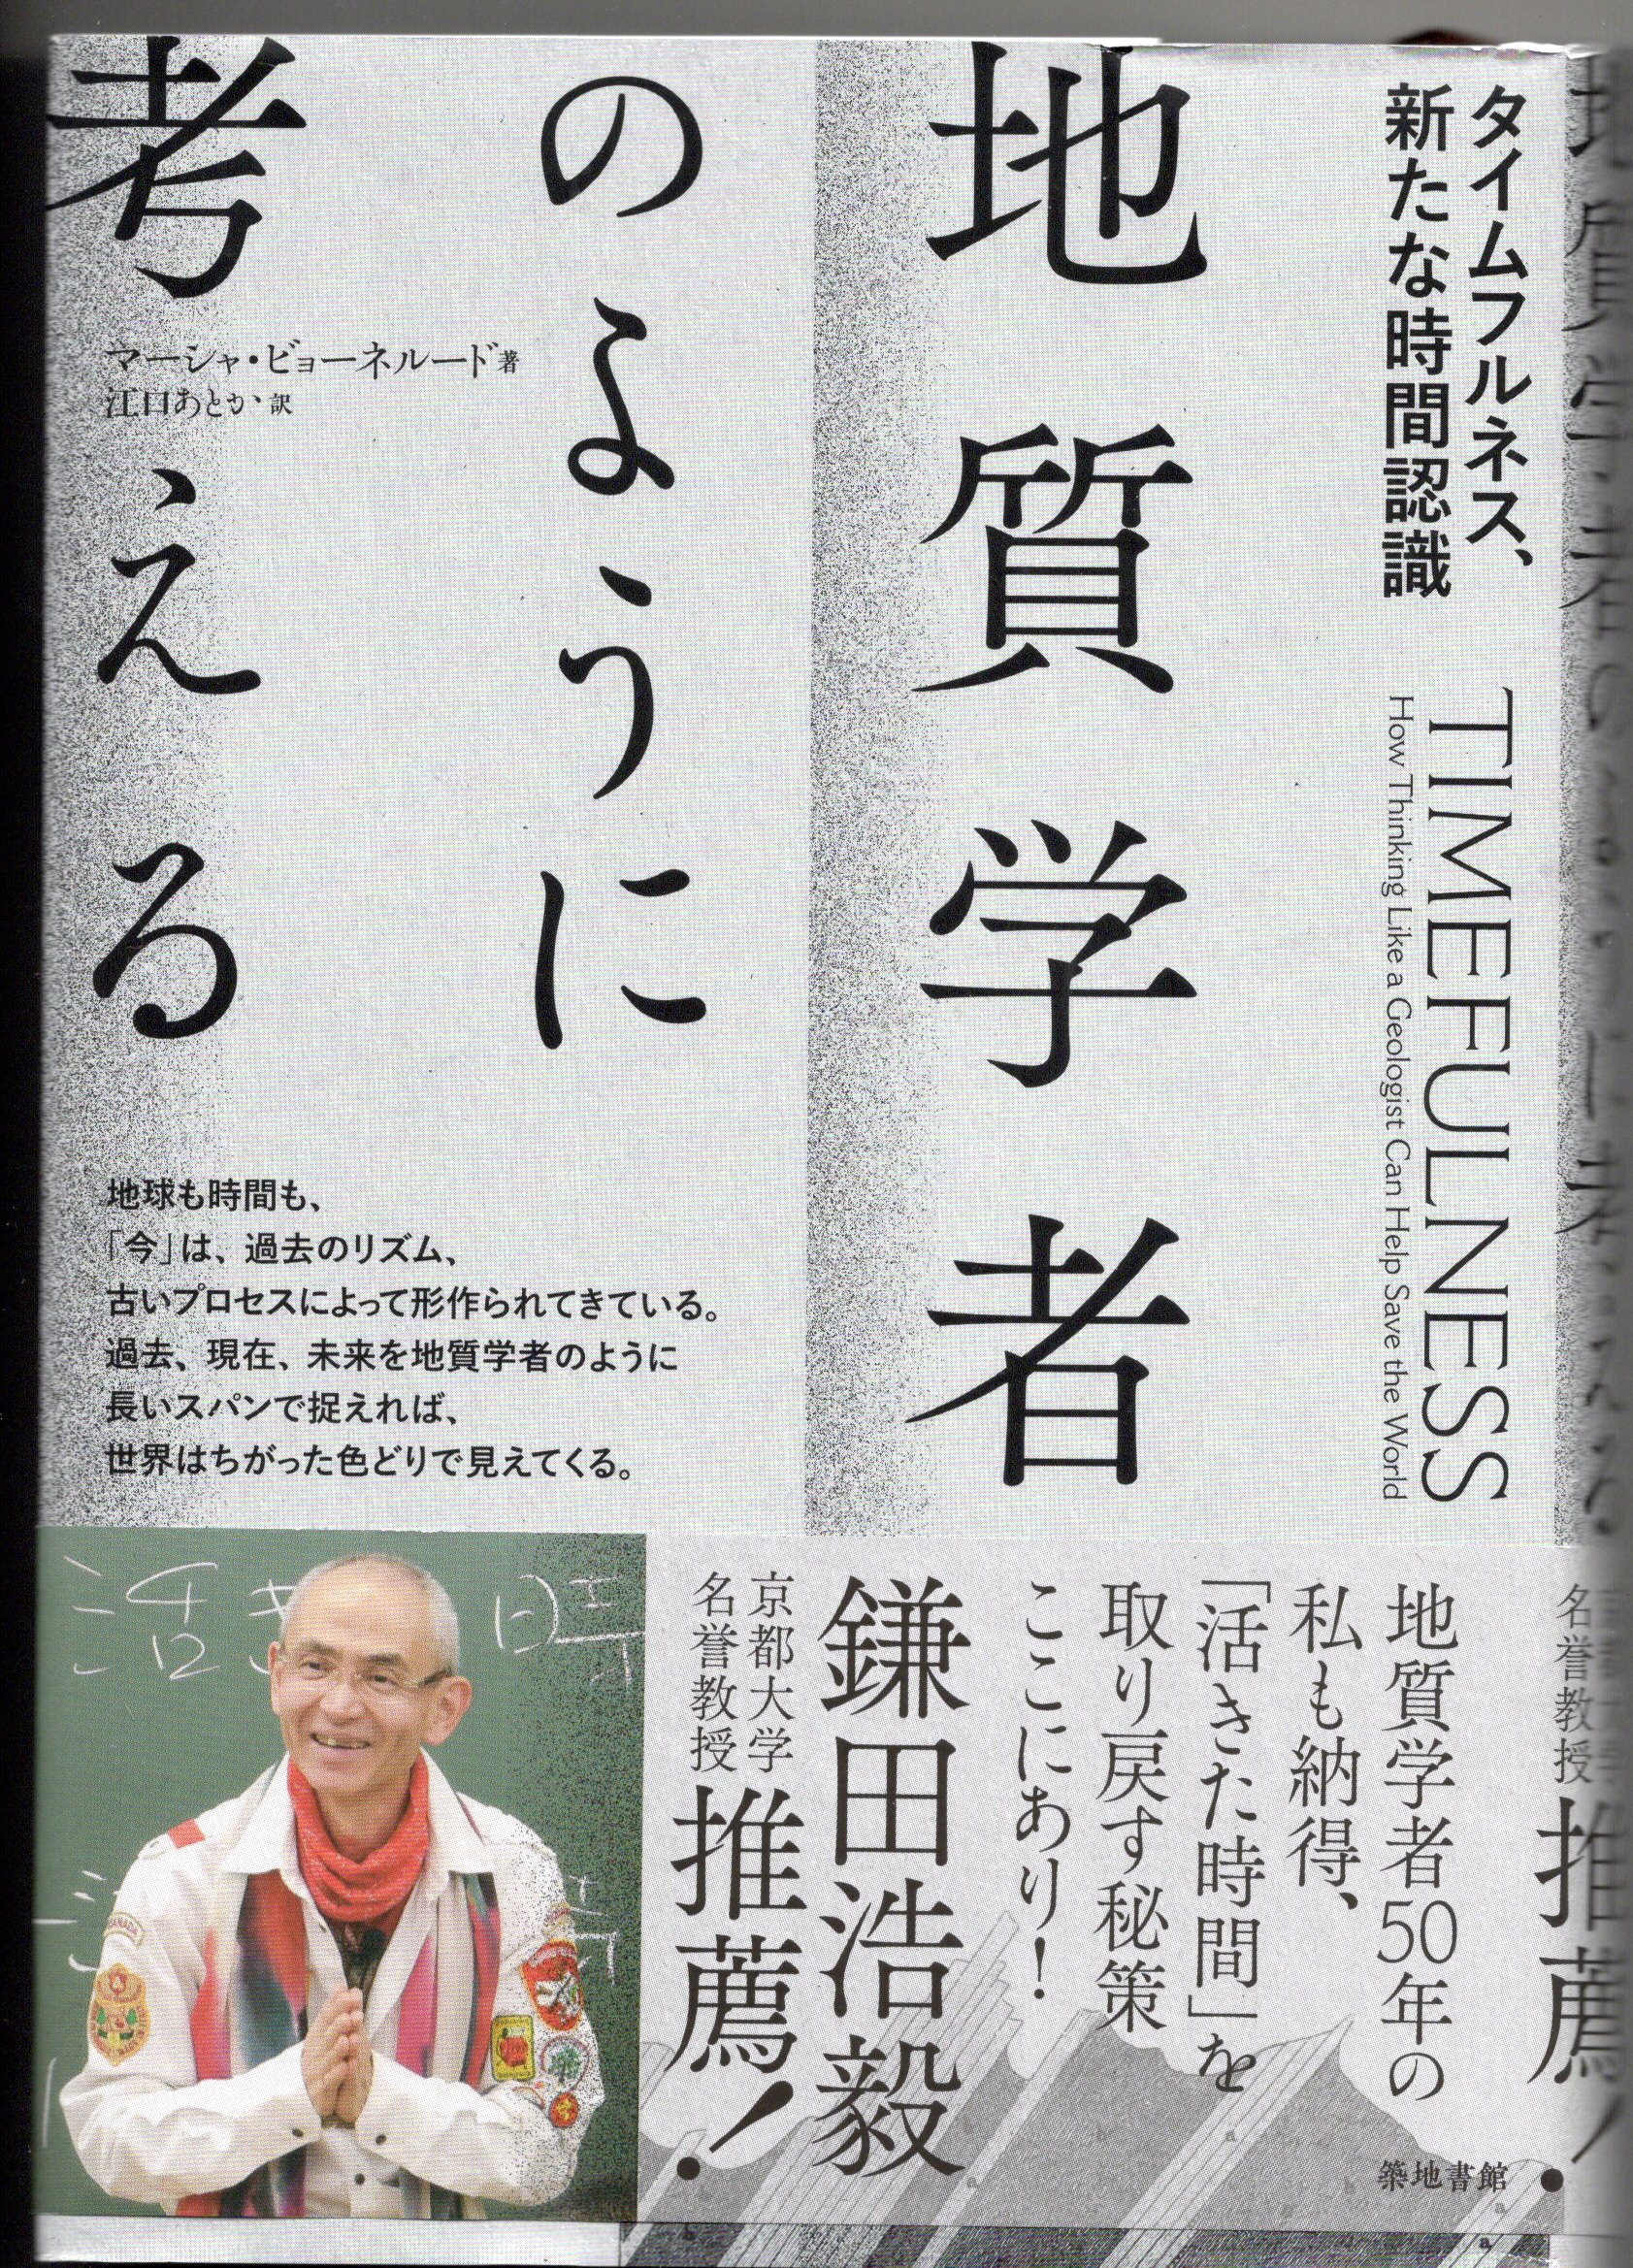 タイムフルネス、
新たな時間認識
TIMEFULNESS
How Thinking Like a Geologist Can Help Save the World
地質学者
のように
考える
マーシャ・ビョーネルード 著
江口あとか・訳
地球も時間も、
「今」は、過去のリズム、
古いプロセスによって形作られてきている。
過去、現在、未来を地質学者のように
長いスパンで捉えれば、
世界はちがった色どりで見えてくる。
地質学者50年の
私も納得、
「活きた時間」を
取り戻す秘策
ここにあり！
鎌田浩毅
京都大学
名誉教授
推薦！
築地書館
活き 時
名誉教授
推薦！